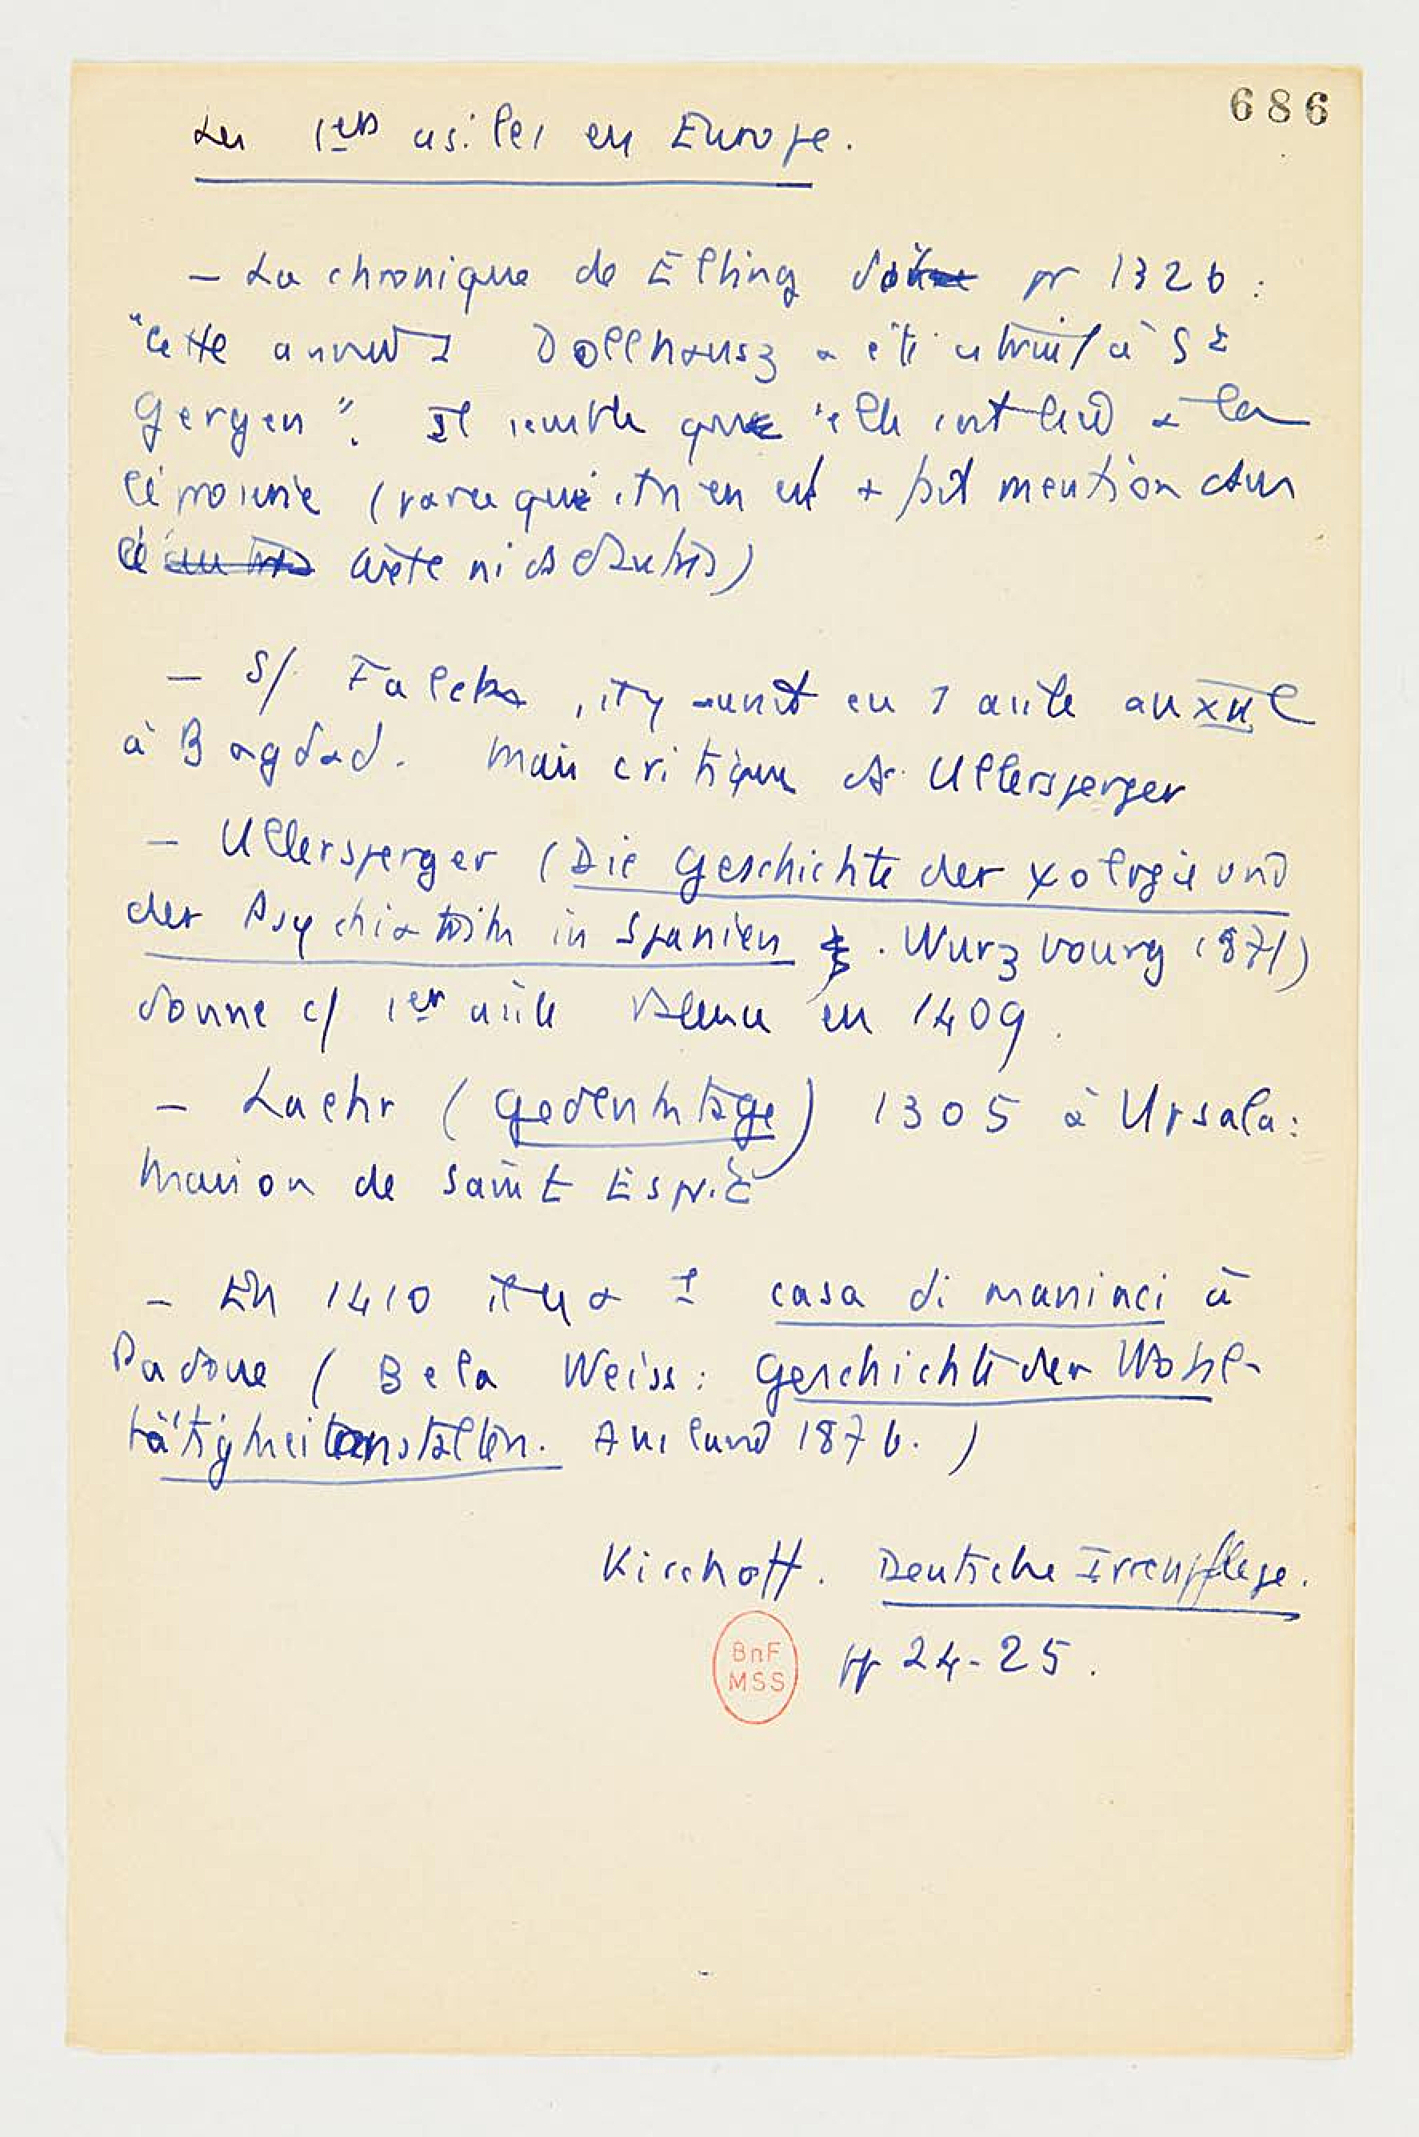 686
Les 1ers asiles en Europe.
— La chronique de Elbing dit pr 1326 :
"Cette année 1 Dollhausz a été cstruit à St
Gergen". Il semble que elle ait succédé à la
léproserie (parce que il n'en est + fait mention dans
cette ni ds d'autres)
— S/ Falck, il y aurait eu 1 asile au XIIe
à Bagdad. Mais critique de Ullersperger
— Ullersperger (Die Geschichte der ψologie und
der Psychiatrie in Spanien. Wurzbourg 1871)
donne c/ 1er asile Valence en 1409.
— Laehr (Gedenktage) 1305 à Upsala :
Maison de Saint Esprit
— En 1410 il y a 1 casa di maniaci à
Padoue (Bela Weiss : Geschichte der Wohl-
tätigkeitanstalten. Ausland 1876.)
Kirchoff. Deutsche Irrenpflege.
pp 24-25.
BnF
MSS